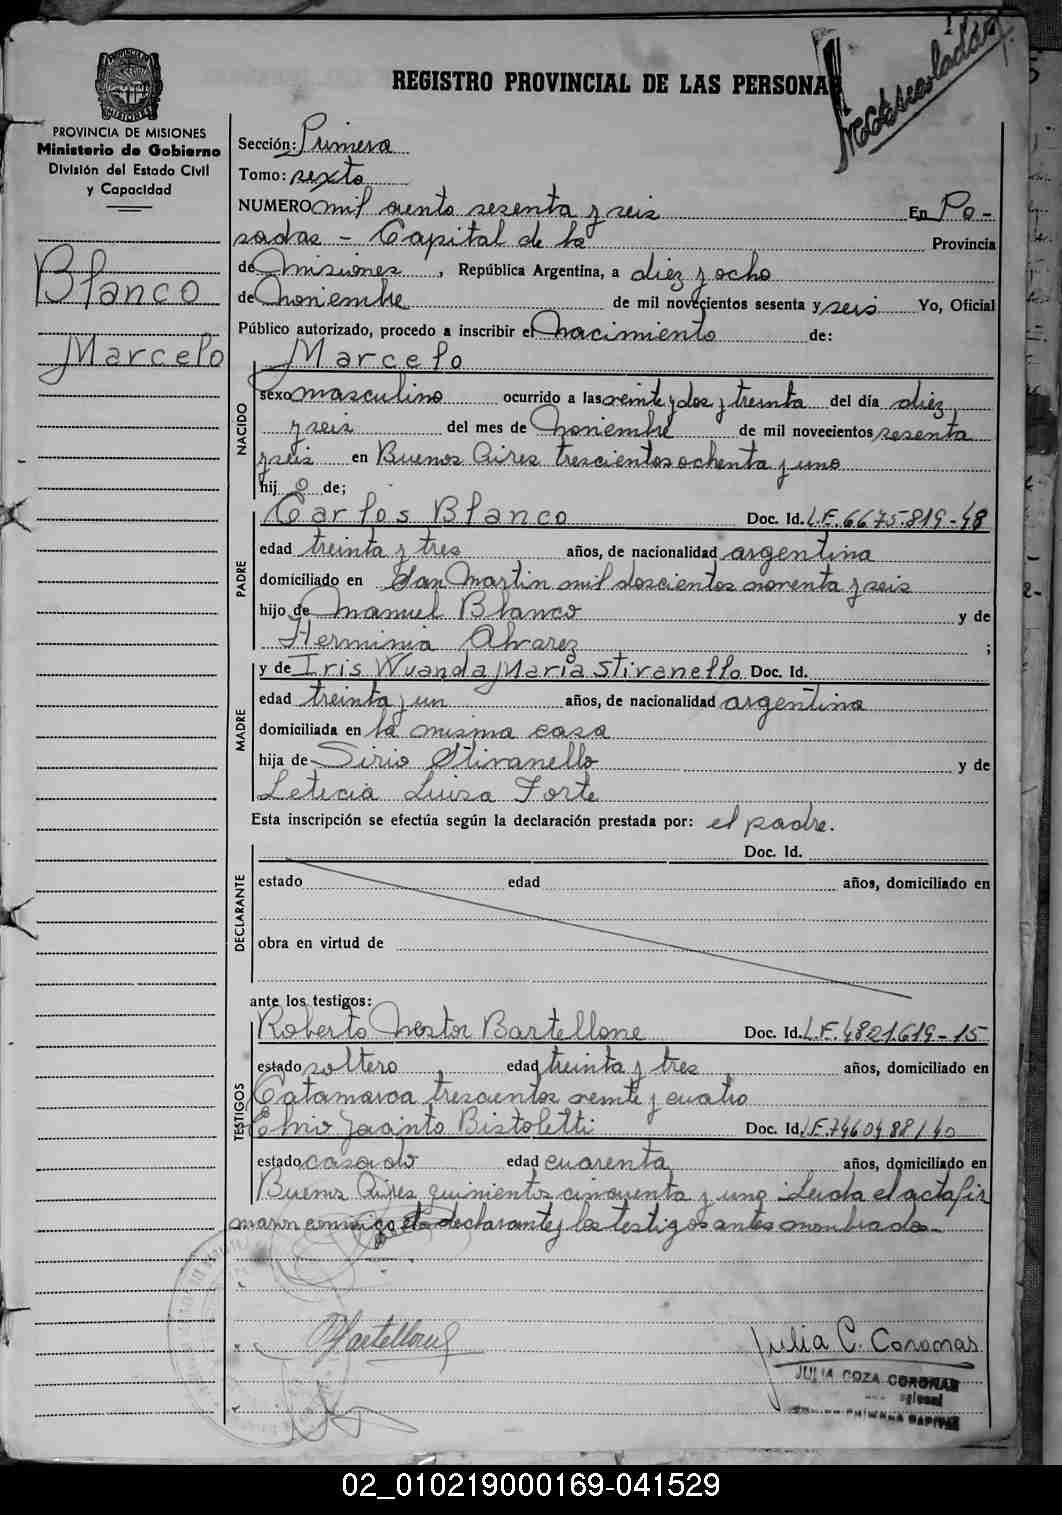 REGISTRO PROVINCIAL DE LAS PERSONAS
PROVINCIA DE MISIONES
Ministerio de Gobierno
División del Estado Civil
y Capacidad
Blanco
Marcelo
Sección: Primera
Tomo: sexto
NUMERO mil ciento sesenta y seis En Po-
sadas - Capital de la Provincia
de Misiones, República Argentina, a diez y ocho
de Noviembre de mil novecientos sesenta y seis Yo, Oficial
Público autorizado, procedo a inscribir el Nacimiento de:
Marcelo
NACIDO
sexo masculino ocurrido a las veinte y dos y treinta del día diez
y seis del mes de Noviembre de mil novecientos sesenta
y seis en Buenos Aires trescientos ochenta y uno
hij o de;
PADRE
Carlos Blanco Doc. Id. L.E. 6675.819-48
edad treinta y tres años, de nacionalidad argentina
domiciliado en San Martin mil doscientos noventa y seis
hijo de Manuel Blanco y de
Herminia Alvarez ;
MADRE
y de Iris Wuanda Maria Stivanello Doc. Id.
edad treinta y un años, de nacionalidad argentina
domiciliada en la misma casa
hija de Sirio Stivanello y de
Leticia Luisa Forte
Esta inscripción se efectúa según la declaración prestada por: el padre.
DECLARANTE
Doc. Id.
estado edad años, domiciliado en
obra en virtud de
ante los testigos:
TESTIGOS
Roberto Nestor Bartellone Doc. Id. L.E. 4821.619-15
estado soltero edad treinta y tres años, domiciliado en
Catamarca trescientos veinte y cuatro
Elvio Jacinto Bistoletti Doc. Id. L.E. 7460488140
estado casado edad cuarenta años, domiciliado en
Buenos Aires quinientos cincuenta y uno Leida el acta fir
maron conmigo el declarante y los testigos antes nombrados-
Julia C. Coronas
JULIA COZA CORONAS
CAPITAL
02_010219000169-041529